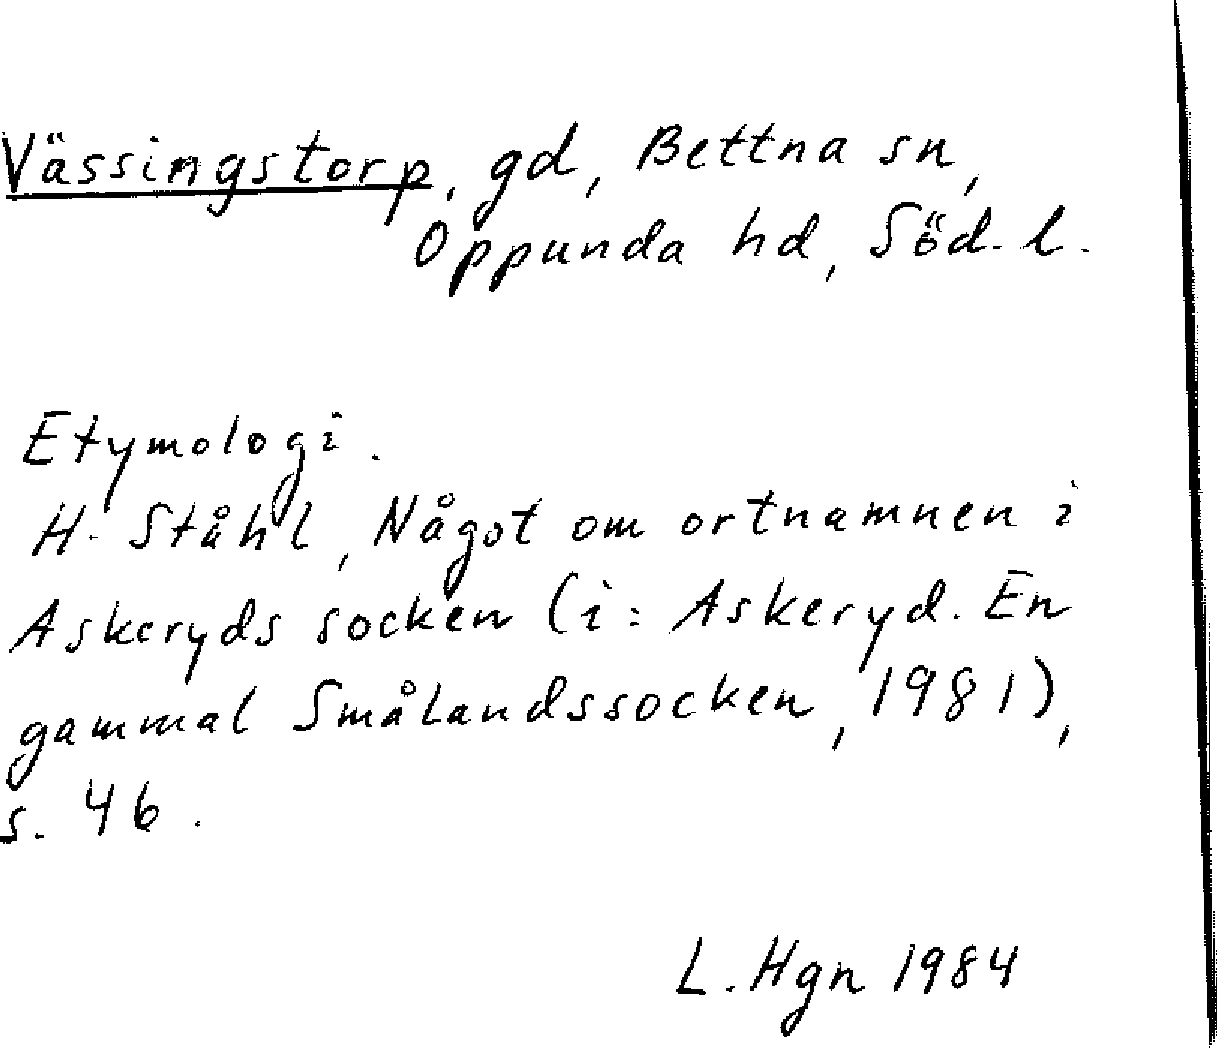 Vässingstorp, gd, Bettna sn,
Oppunda hd, Söd. l.
Etymologi.
H. Ståhl, Något om ortnamnen i
Askeryds socken (i: Askeryd. En
gammal Smålandssocken, 1981),
s. 46.
L. Hgn 1984